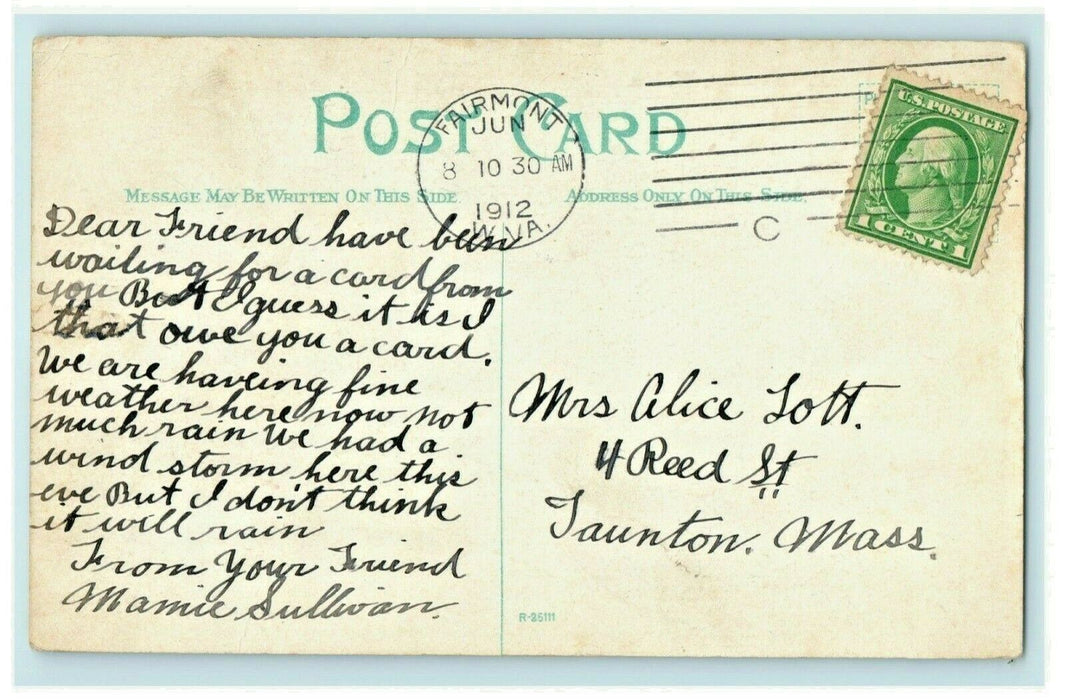 POST CARD
MESSAGE MAY BE WRITTEN ON THIS SIDE
ADDRESS ONLY ON THIS SIDE.
FAIRMONT
JUN
8 10 30 AM
1912
W.VA.
C
U.S. POSTAGE
1 CENT 1
Dear Friend have been
waiting for a card from
you But I guess it is I
that owe you a card.
We are haveing fine
weather here now not
much rain We had a
wind storm here this
eve But I don't think
it will rain
From Your Friend
Mamie Sullivan.
Mrs Alice Lott.
4 Reed St
Taunton. Mass.
R-25111